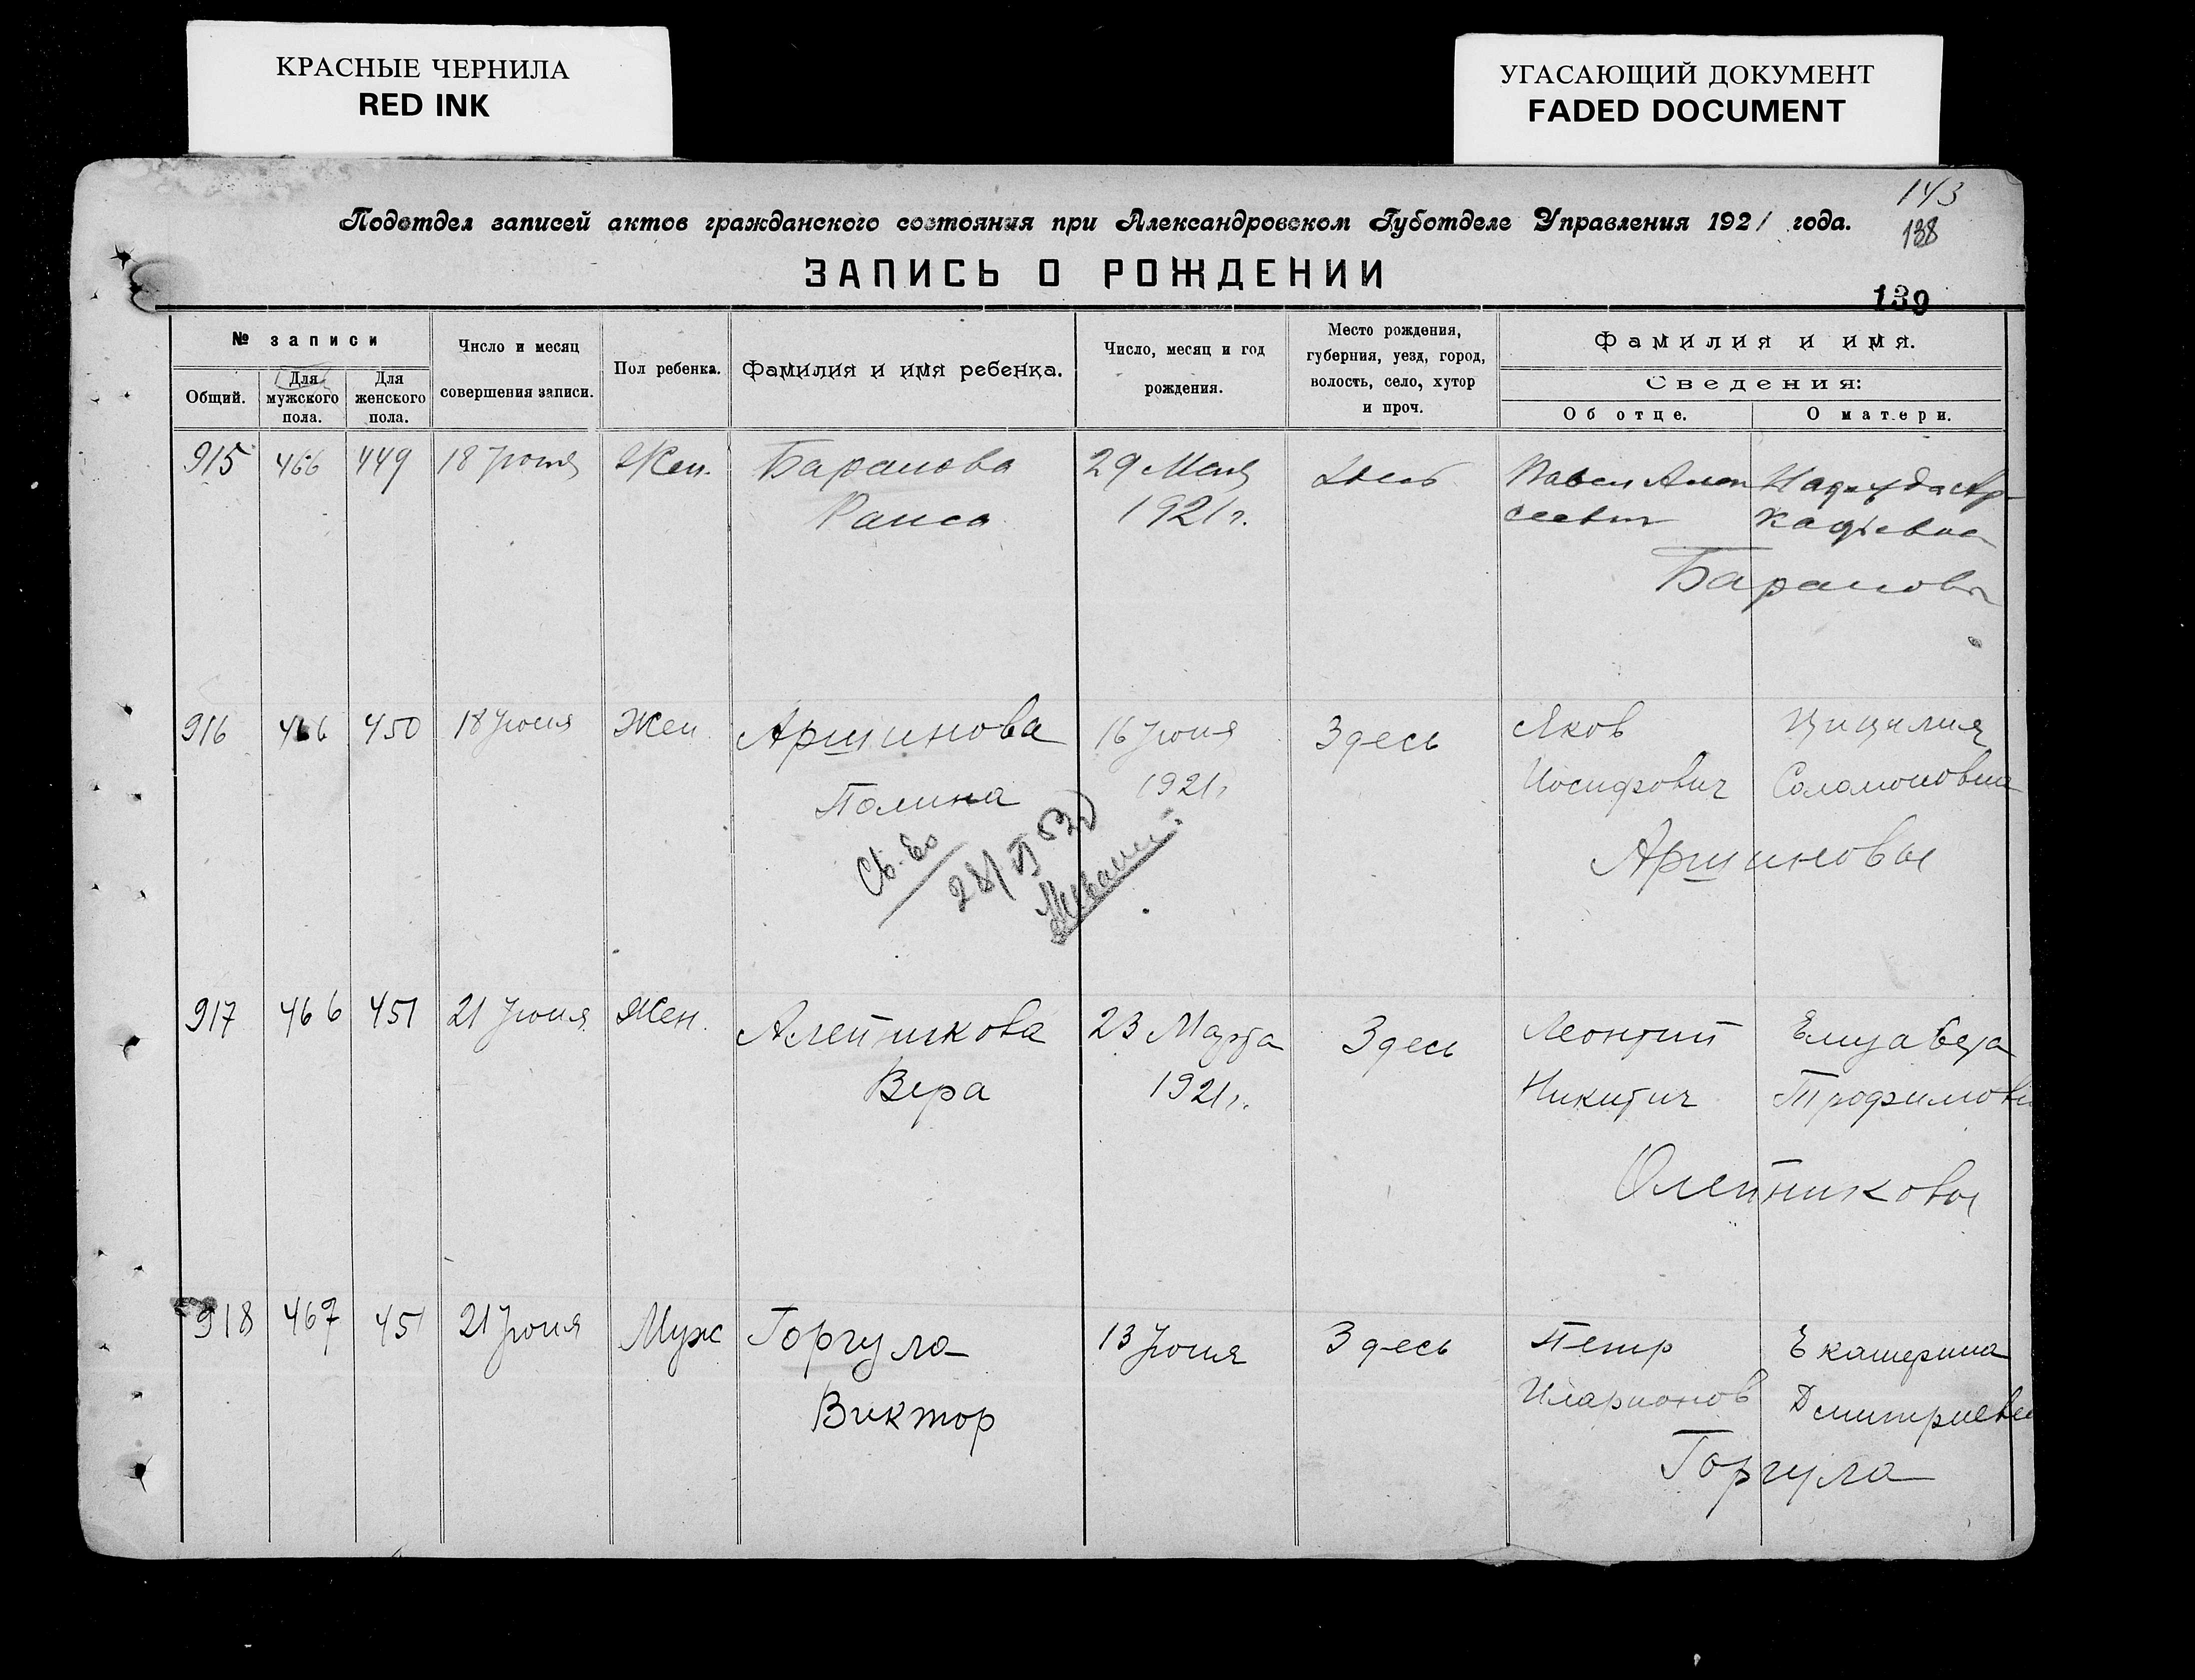 КРАСНЫЕ ЧЕРНИЛА
RED INK
УГАСАЮЩИЙ ДОКУМЕНТ
FADED DOCUMENT
143
138
Подотдел записей актов гражданского состояния при Александровском Губотделе Управления 1921 года.
ЗАПИСЬ О РОЖДЕНИИ
139
№ записи
Общий.
Для мужского пола.
Для женского пола.
Число и месяц совершения записи.
Пол ребенка.
Фамилия и имя ребенка.
Число, месяц и год рождения.
Место рождения, губерния, уезд, город, волость, село, хутор и проч.
Фамилия и имя.
Сведения:
Об отце.
О матери.
915 466 449 18 Июня Жен. Баранова 29 Мая Здесь Павел Алек Надежда Ар-
Раиса 1921 г. сеевич кадьевна
Барановы
916 466 450 18 Июня Жен Аршинова 16 Июня Здесь Яков Цицилия
Полина 1921 г. Иосифович Соломоновна
Аршиновы
28/
917 466 451 21 Июня Жен. Алейникова 23 Марта Здесь Леонтий Елизавета
Вера 1921 г. Никитич Трофимовн
Олейниковы
918 467 451 21 Июня Муж Горгула 13 Июня Здесь Петр Екатерина
Виктор Иларионов Дмитриевн
Горгула